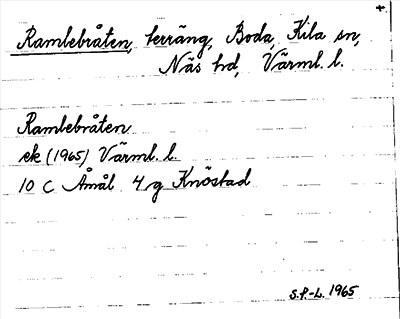 +
Ramlebråten, terräng, Boda, Kila sn,
Näs hd, Värml. l.
Ramlebråten
ek (1965) Värml. l.
10 C Åmål 4 g Knöstad
S.P.-L. 1965